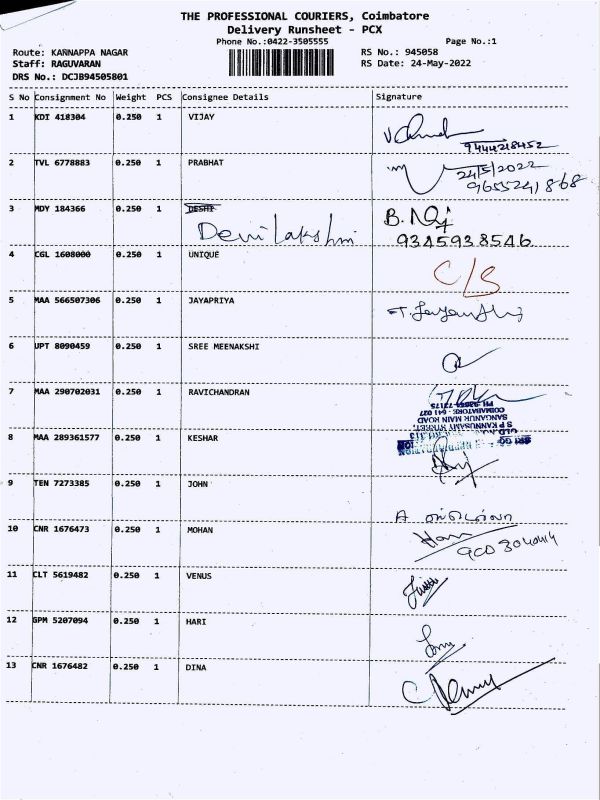 THE PROFESSIONAL COURIERS, Coimbatore
Delivery Runsheet - PCX
Phone No.:0422-3505555 Page No.:1
Route: KANNAPPA NAGAR RS No.: 945058
Staff: RAGUVARAN RS Date: 24-May-2022
DRS No.: DCJB94505801
S No Consignment No Weight PCS Consignee Details Signature
1 KDI 418304 0.250 1 VIJAY
9444218452
2 TVL 6778883 0.250 1 PRABHAT
24/5/2022
9655241868
3 MDY 184366 0.250 1 DESHF
Devi Lakshmi
9345938546
4 CGL 1608000 0.250 1 UNIQUE
C/S
5 MAA 566507306 0.250 1 JAYAPRIYA
6 UPT 8090459 0.250 1 SREE MEENAKSHI
7 MAA 290702031 0.250 1 RAVICHANDRAN
COIMBATORE - 641 027
SANGANUR MAIN ROAD
S P KANNUSAMY STREET,
8 MAA 289361577 0.250 1 KESHAR
9 TEN 7273385 0.250 1 JOHN
10 CNR 1676473 0.250 1 MOHAN
11 CLT 5619482 0.250 1 VENUS
12 GPM 5207094 0.250 1 HARI
13 CNR 1676482 0.250 1 DINA